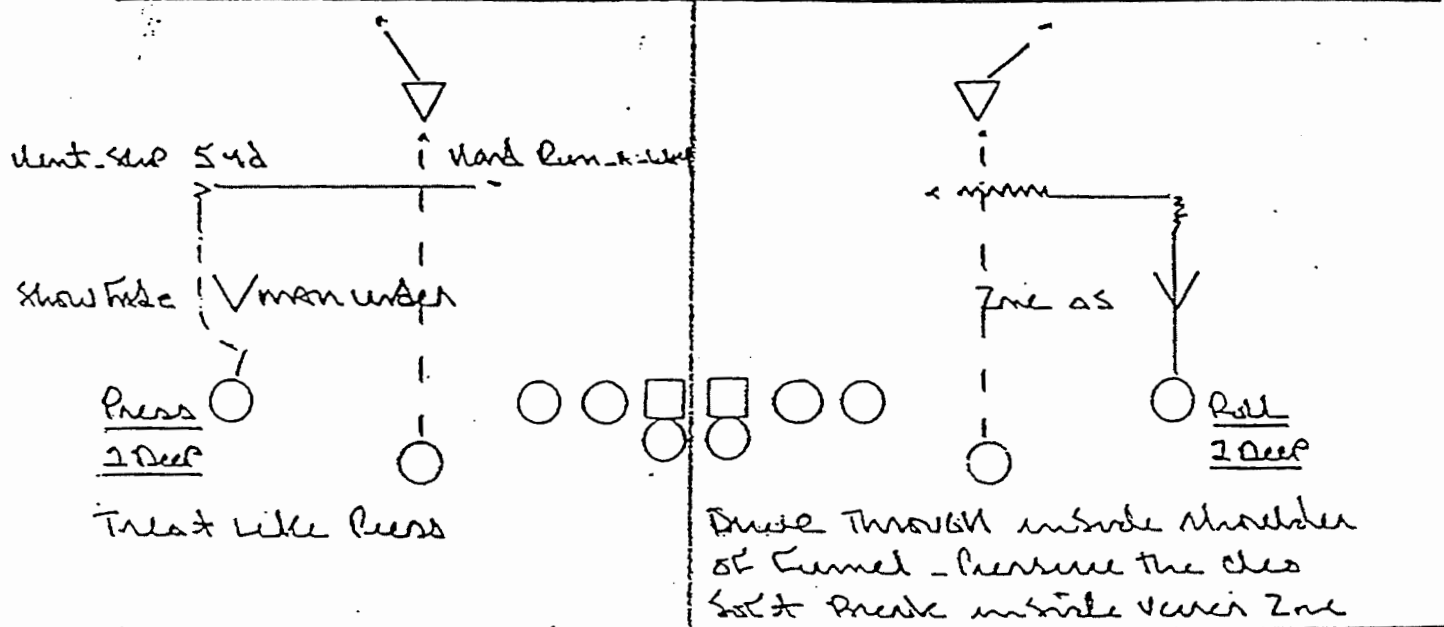 Vent-Step 5 yd
Hard Run-A-Way
Show Fade
V man under
Press
2 Deep
Treat Like Press
Zone as
Roll
2 Deep
Drive Through inside shoulder
of Funnel - Pressure the
Soft Break inside versus Zone